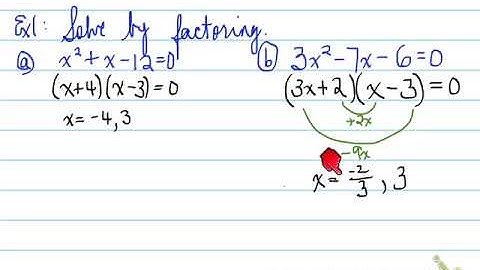 Ex1: Solve by factoring.
(a) x² + x - 12 = 0
(x+4)(x-3) = 0
x = -4, 3
(b) 3x² - 7x - 6 = 0
(3x+2)(x-3) = 0
+2x
-9x
x = -2/3, 3